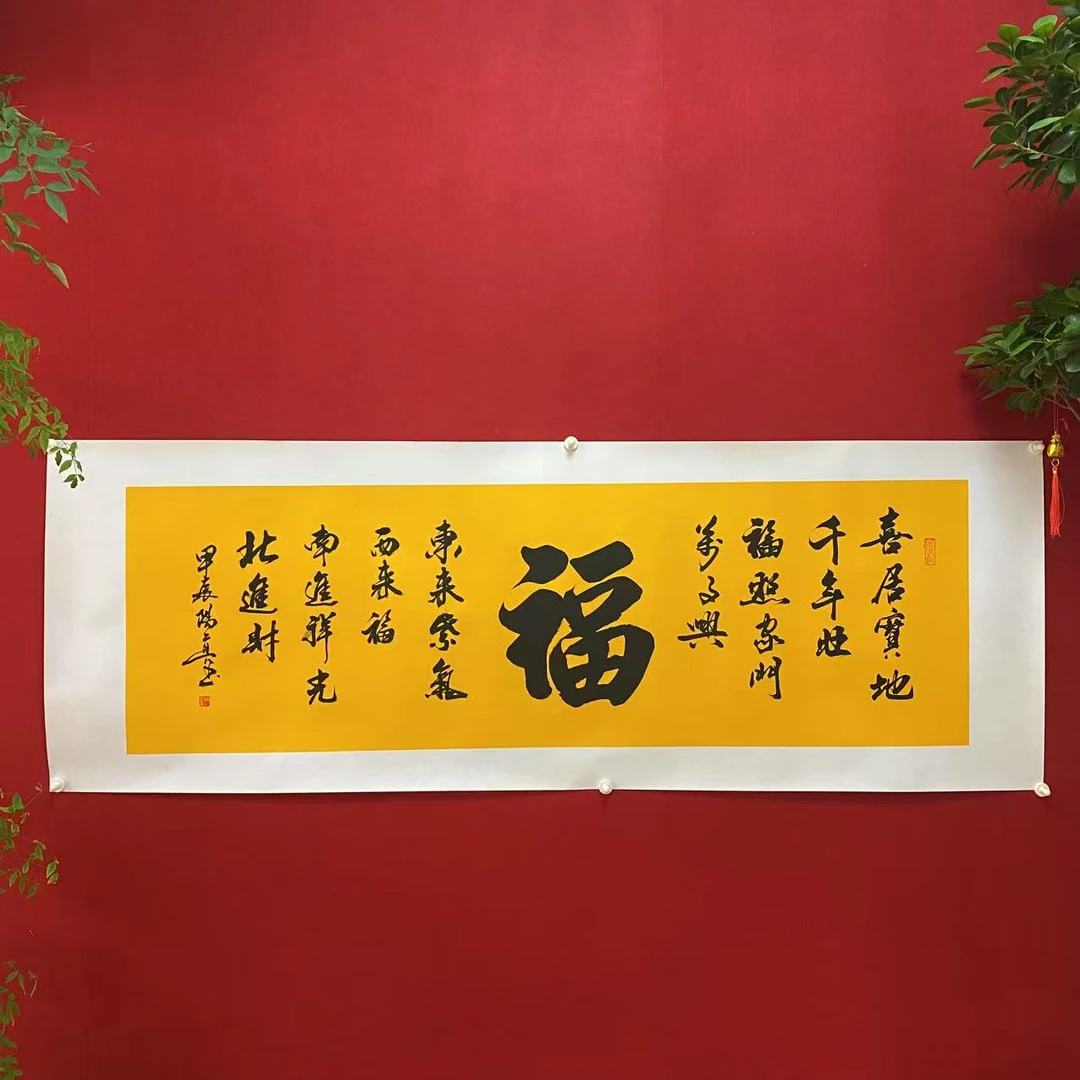 喜居寶地
千年旺
福照家門
萬事興
福
東来紫氣
西来福
南進祥光
北進財
甲辰